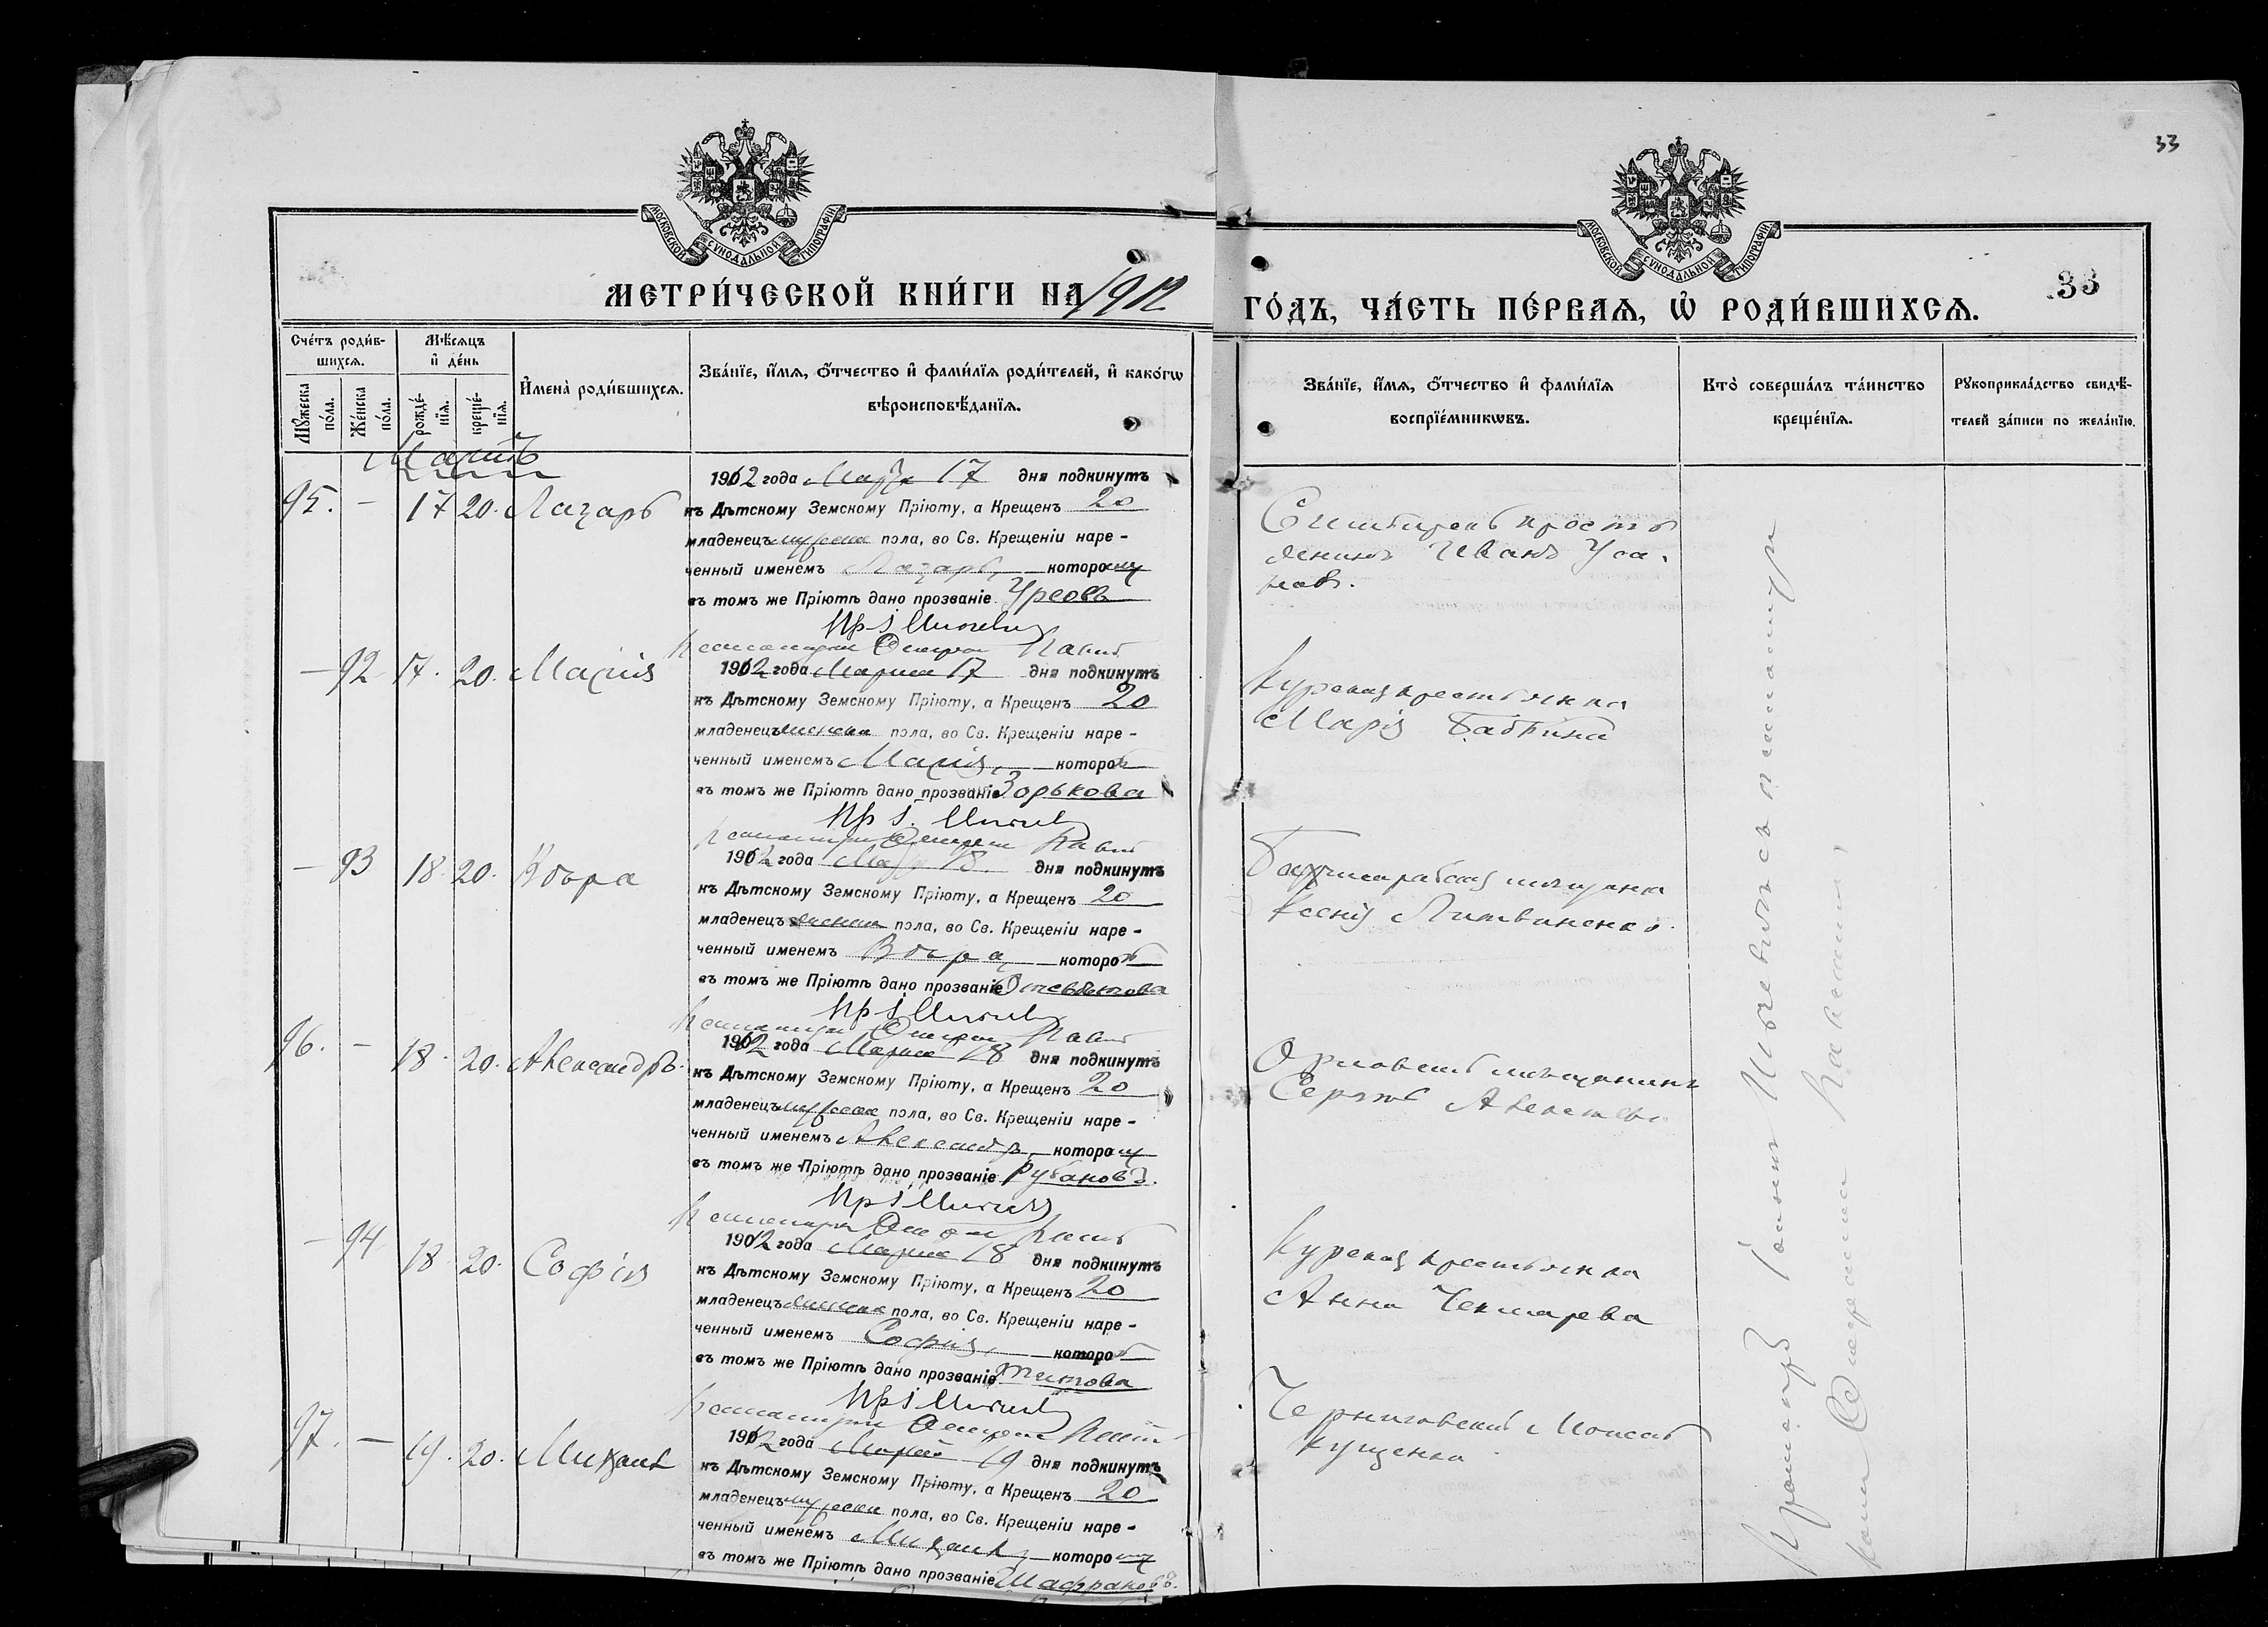 33
МОСКОВСКОЙ СѴНОДАЛЬНОЙ ТИПОГРАФІИ
МОСКОВСКОЙ СѴНОДАЛЬНОЙ ТИПОГРАФІИ
МЕТРИ́ЧЕСКОЙ КНИ́ГИ НА 1912
ГО́ДЪ, ЧА́СТЬ ПЕ́РВАЯ, Ѡ҆ РОДИ́ВШИХСЯ.
33
Сче́тъ роди́в-
шихся.
Мꙋ́жеска по́ла.
Же́нска по́ла.
Мѣ́сяцъ
и҆ де́нь
рожде́-
нїя.
креще́-
нїя.
И҆мена̀ роди́вшихся.
Зва́нїе, и҆́мя, о҆́тчество и҆ фами́лїя роди́телей, и҆ како́гѡ
вѣроисповѣ́данїя.
Зва́нїе, и҆́мя, о҆́тчество и҆ фами́лїя
воспрїе́мникѡвъ.
Кто̀ соверша́лъ та́инство
креще́нїя.
Рꙋкоприкла́дство свидѣ́-
телей за́писи по жела́нїю.
Мартъ
95. — 17 20. Лазарь
1912 года Марта 17 дня подкинутъ
къ Дѣтскому Земскому Пріюту, а Крещенъ 20
младенецъ мужеска пола, во Св. Крещеніи наре-
ченный именемъ Лазарь, которому
въ томъ же Пріютѣ дано прозваніе Урсовъ
крестья
нинъ Иванъ Уса
— 92 17. 20. Марія
1912 года Марта 17 дня подкинутъ
къ Дѣтскому Земскому Пріюту, а Крещенъ 20
младенецъ женска пола, во Св. Крещеніи наре-
ченный именемъ Марія, которой
въ томъ же Пріютѣ дано прозваніе Зорькова
Курская крестьянка
Марія Бабкина
— 93 18. 20. Вѣра
1912 года Марта 18. дня подкинутъ
къ Дѣтскому Земскому Пріюту, а Крещенъ 20
младенецъ женска пола, во Св. Крещеніи наре-
ченный именемъ Вѣра, которой
въ томъ же Пріютѣ дано прозваніе
Бахчисарайская мѣщанка
Ксенія Литвиненко.
96. — 18. 20. Александръ.
1912 года Марта 18 дня подкинутъ
къ Дѣтскому Земскому Пріюту, а Крещенъ 20
младенецъ мужеска пола, во Св. Крещеніи наре-
ченный именемъ Александръ, которому
въ томъ же Пріютѣ дано прозваніе Рубановъ.
Орловскій мѣщанинъ
Сергѣй
— 94 18 20. Софія
1912 года Марта 18 дня подкинутъ
къ Дѣтскому Земскому Пріюту, а Крещенъ 20
младенецъ женска пола, во Св. Крещеніи наре-
ченный именемъ Софія, которой
въ томъ же Пріютѣ дано прозваніе Титова
Курская крестьянка
Анна Чекмарева
97. — 19. 20. Михаилъ
1912 года Марта 19 дня подкинутъ
къ Дѣтскому Земскому Пріюту, а Крещенъ 20
младенецъ мужеска пола, во Св. Крещеніи наре-
ченный именемъ Михаилъ, которому
въ томъ же Пріютѣ дано прозваніе Шафрановъ.
Черниговскій Моисей
Кущенко
Іоаннъ съ псаломщи